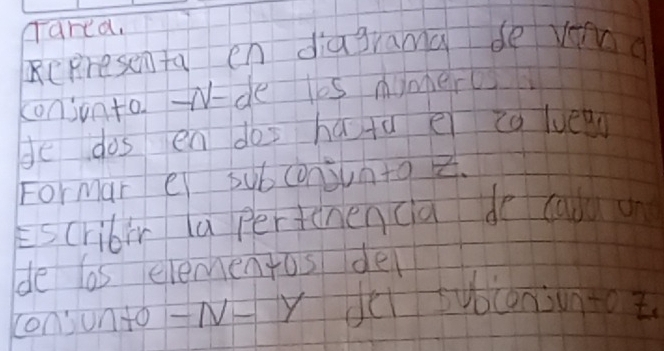 Tarea.
Representa en diagrama de venn
conjunto -N- de los números
de dos en dos hasta el 20 luego
Formar el subconjunto z.
Escribir la Pertenencia de cada uno
de los elementos del
conjunto -N- Y del subconjunto z.